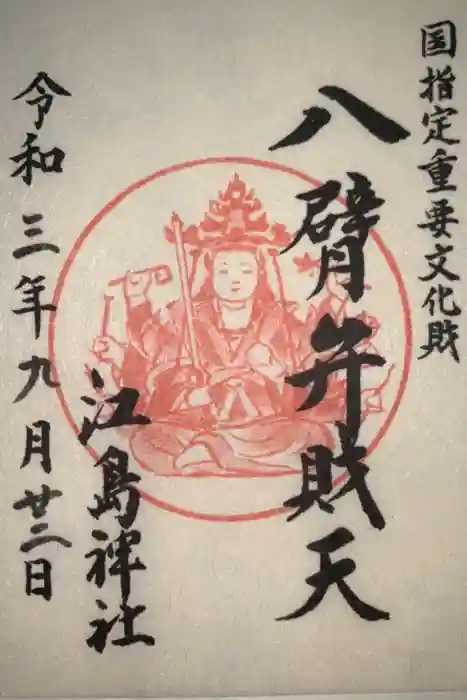 国指定重要文化財
八臂弁財天
江島神社
令和三年九月廿二日